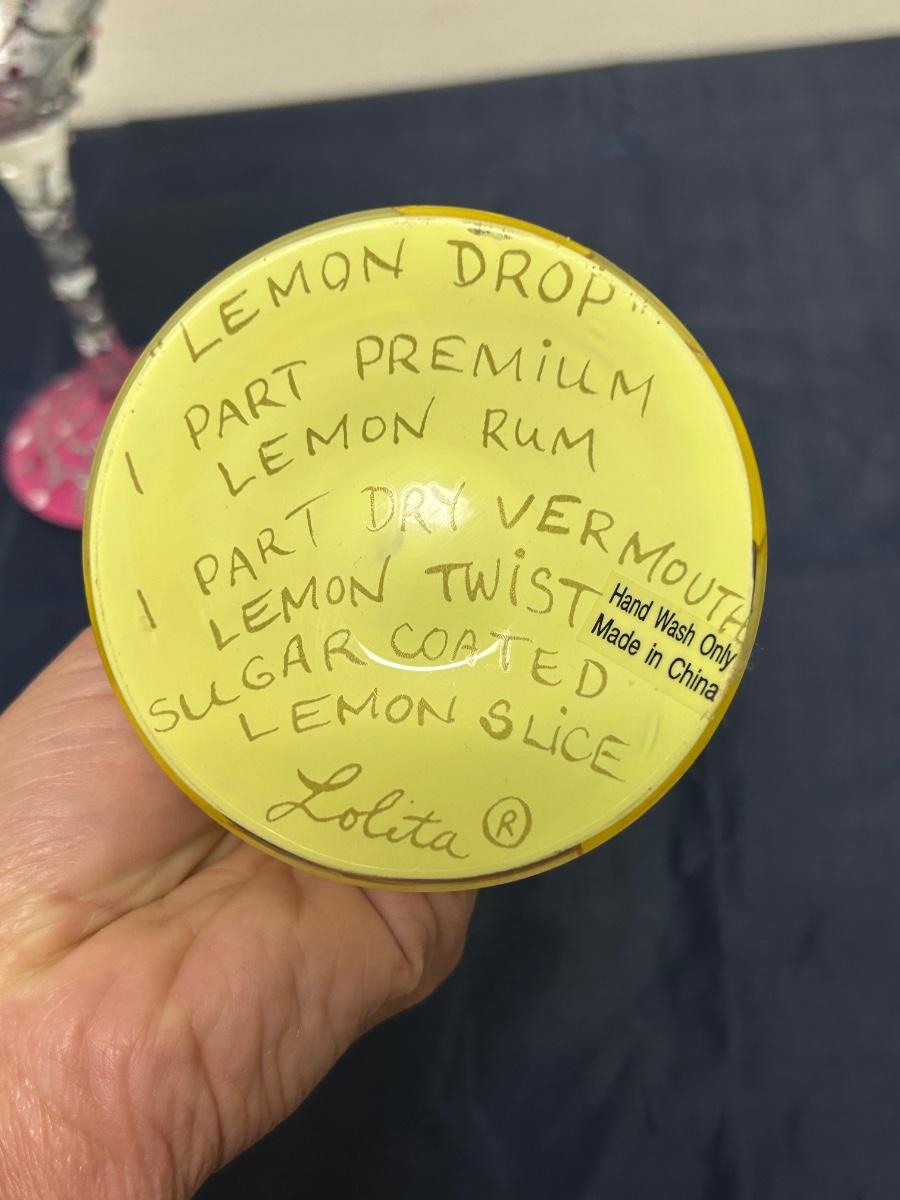 "LEMON DROP"
1 PART PREMIUM
LEMON RUM
1 PART DRY VERMOUTH
LEMON TWIST
SUGAR COATED
LEMON SLICE
Lolita ®
Hand Wash Only
Made in China